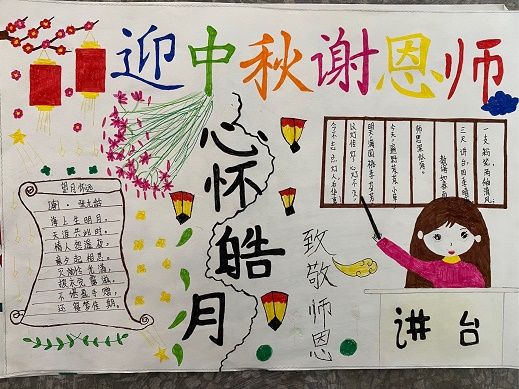 迎中秋谢恩师
心怀皓月
望月怀远
唐·张九龄
海上生明月，
天涯共此时。
情人怨遥夜，
竟夕起相思。
灭烛怜光满，
披衣觉露滋。
不堪盈手赠，
还寝梦佳期。
一支粉笔，两袖清风；
三尺讲台四季晴
教诲如春风
师恩深似海。
明天满园桃李芬芳
致敬师恩
讲台